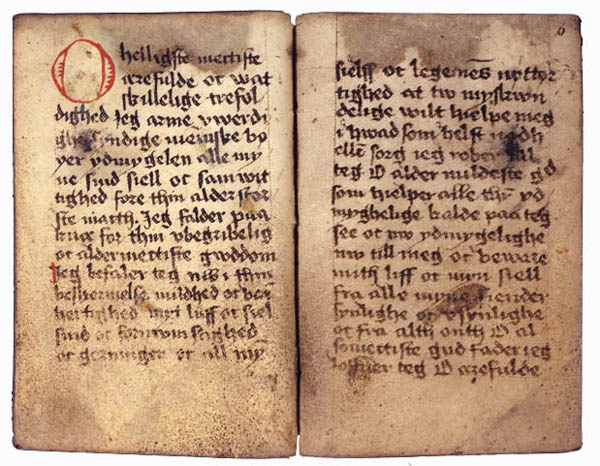 O heiligste mectiste
ærefulde oc wat
skillelige trefol
dighed Jeg arme vwerdi
ghe syndige menniske bø
yer ydmygelen alle my
ne sind siell oc samwit
tighed fore thin alder stør
ste macth. Jeg falder paa
knæ for thin vbegribelig
oc aldermectiste gwddom
Jeg befaler teg i thin
beskermelse mildhed oc
hertighed mit liff oc siel
sind oc
oc gerninger oc all my
6
sielff oc legemes nøttør
tighed at tw myskwn
delige wilt hielpe meg
i hwad som helst nødh
eller sorg ieg rober till
teg O alder mildeste gud
som hielper alle yd
myghelige kalde paa teg
see oc nw ydmygelighe
nw till meg oc beware
mith liff oc myn siell
fra alle myne fiender
synlighe oc vsynlighe
oc fra alth onth O al
somectiste gud fader ieg
loffuer teg O ærefulde